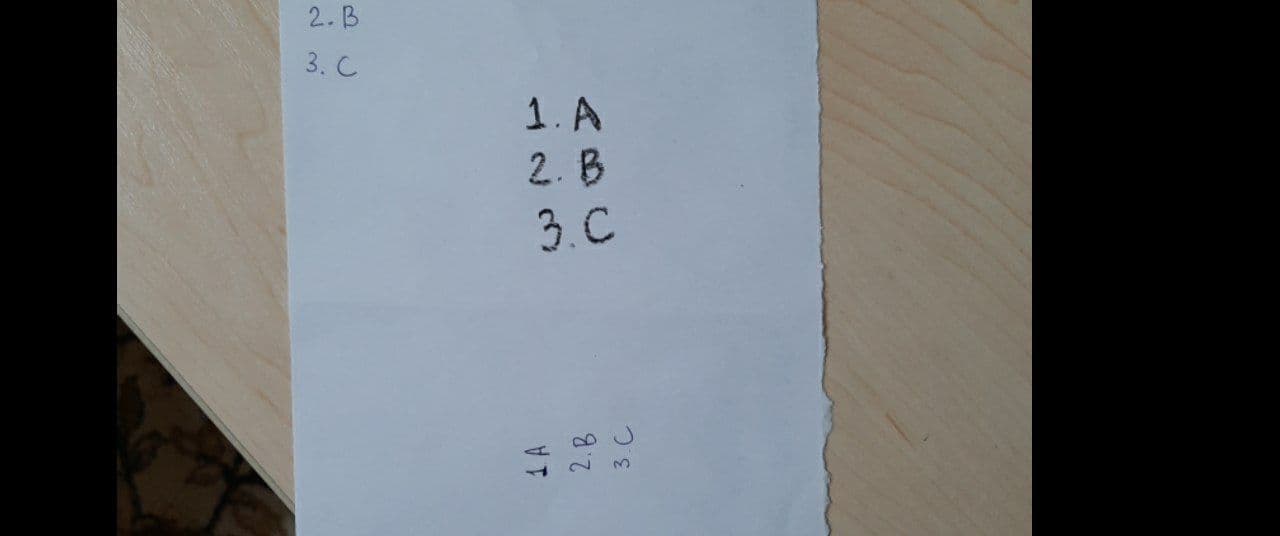 2. B
3. C
1. A
2. B
3. C
1 A
2. B
3. C